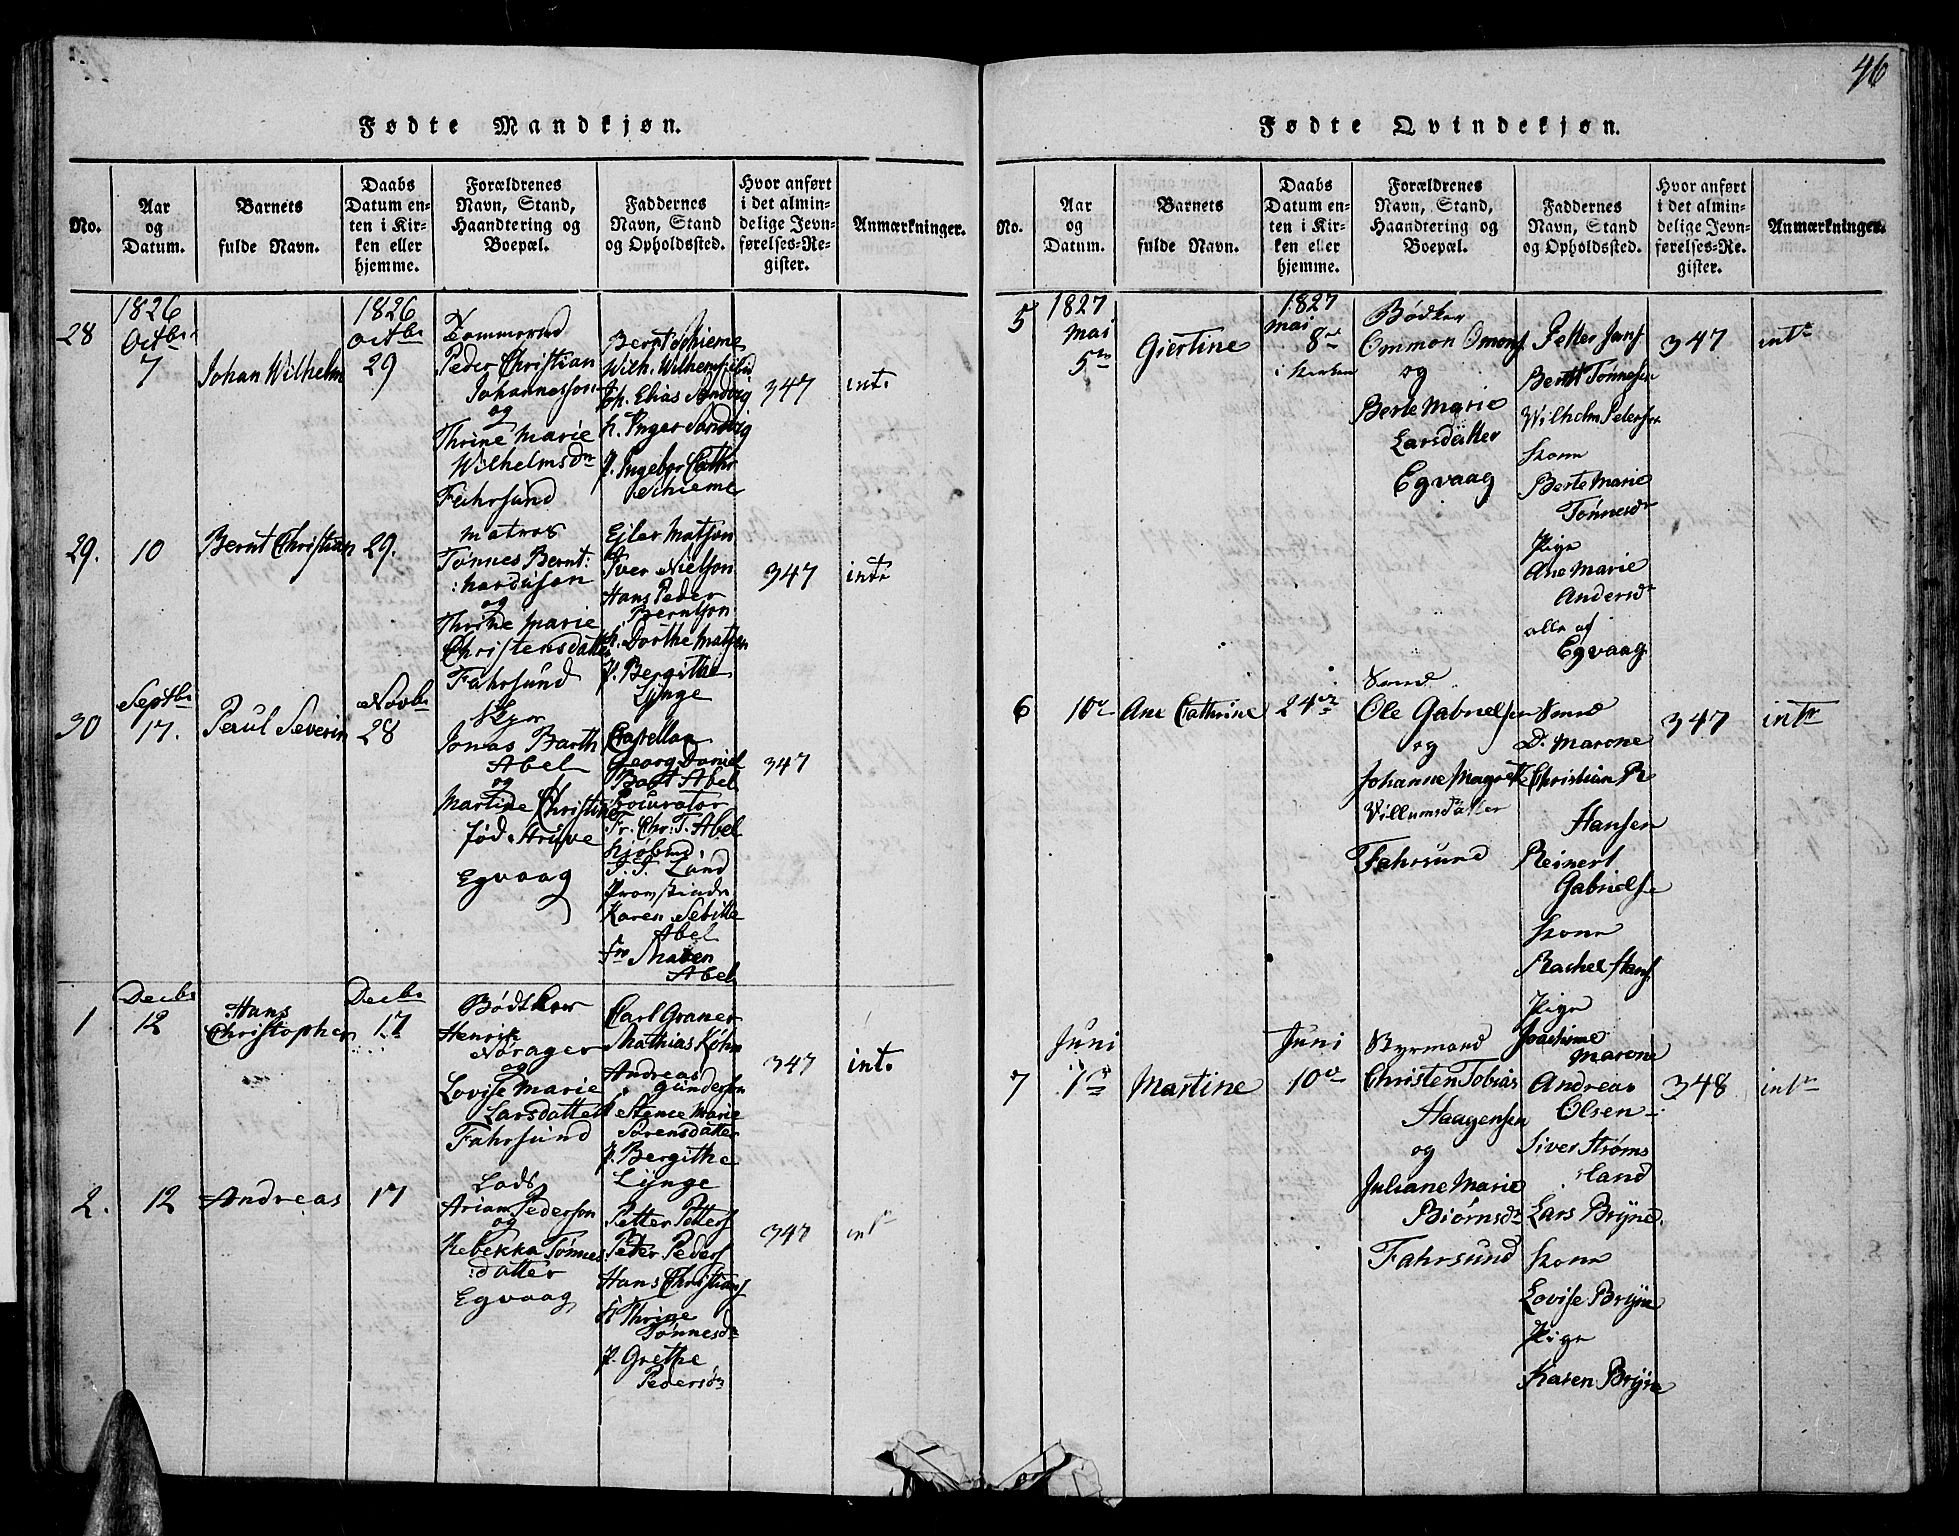 46
Fødte Mandkjøn.
No.
Aar og Datum.
Barnets fulde Navn.
Daabs Datum enten i Kirken eller hjemme.
Forældrenes Navn, Stand, Haandtering og Boepæl.
Faddernes Navn, Stand og Opholdssted.
Hvor anført i det almindelige Jevnførelses-Register.
Anmærkninger.
28
1826
Octbr
7
Johan Wilhelm
1826
Octbr
29
Peder Christian
Johannesson
og
Thrine Marie
Wilhelmsdr
Fahrsund
Bernt Schieme
Joh. Elias Sandvig
k. Inger Sandvig
P. Ingebor Cathr
Schieme
347
int.
29.
10
Bernt Christian
29.
Matros
Tønnes Bernt:
:hardusson
og
Thrine Marie
Christensdatter
Fahrsund
Ejler Matson
Iver Nielson
Hans Peder
Berntson
k. Dorthe Matson
P. Bergithe
Lynge
347
int.
30
Septbr
17.
Paul Severin
Novbr
28
Jonas Barth
Abel
og
Martine Christine
fød Struve
Egvaag
Capellan
Georg Daniel
Bart Abel
Procurator
Fr. Chr. T. Abel
Kjøbmd.
J. J. Lund
Karen Sebille
Abel
Frr Maren
Abel
347
1
Decbr
12
Hans
Christopher
Decbr
17
Bødtker
Henrik
Norager
og
Lovise Marie
Larsdatter
Fahrsund
Carl Graner
Mathias Køhn
Andreas
Gunderson
k Stence Marie
Sørensdatter
P. Bergithe
Lynge
347
int.
2.
12
Andreas
17
Lods
Arian Pederson
og
Rebekka Tønnes
:datter
Egvaag
Petter Petters
Peder Peders
Hans Christians
k Thrine
Tønnesdr
P. Grethe
Pedersdr
347
int
Fødte Qvindekjøn.
No.
Aar og Datum.
Barnets fulde Navn.
Daabs Datum enten i Kirken eller hjemme.
Forældrenes Navn, Stand, Haandtering og Boepæl.
Faddernes Navn, Stand og Opholdssted.
Hvor anført i det almindelige Jevnførelses-Register.
Anmærkninger.
5
1827
Mai
5te
Giertine
1827
Mai
8de
i Kirken
Bødker
Ommon Omons
og
Berte Marie
Larsdatter
Egvaag
Petter Jans
Berntt Tønnesen
Wilhelm Petersen
Kone
Berte Marie
Tønnesdr
Pige
Ane Marie
Andersdr
alle af
Egvaag
347
intr
6
10de
Ane Cathrine
24de
Ole Gabrielsen
og
Johanne Magrete
Villumsdatter
Fahrsund
D. Marone
Christian R
Hansen
Reinert
Gabrielse
Kone
Rachel Hans
Pige
Joachime
Marone
347
intr
7
Juni
7de
Martine
Juni
10de
Styrmand
Christen Tobias
Haagensen
og
Juliane Marie
Biørnsdr
Fahrsund
Andreas
Olsen
Siver Strøms
land
Lars Bryne
Kone
Lovise Bryne
Pige
Karen Bryne
348
intr